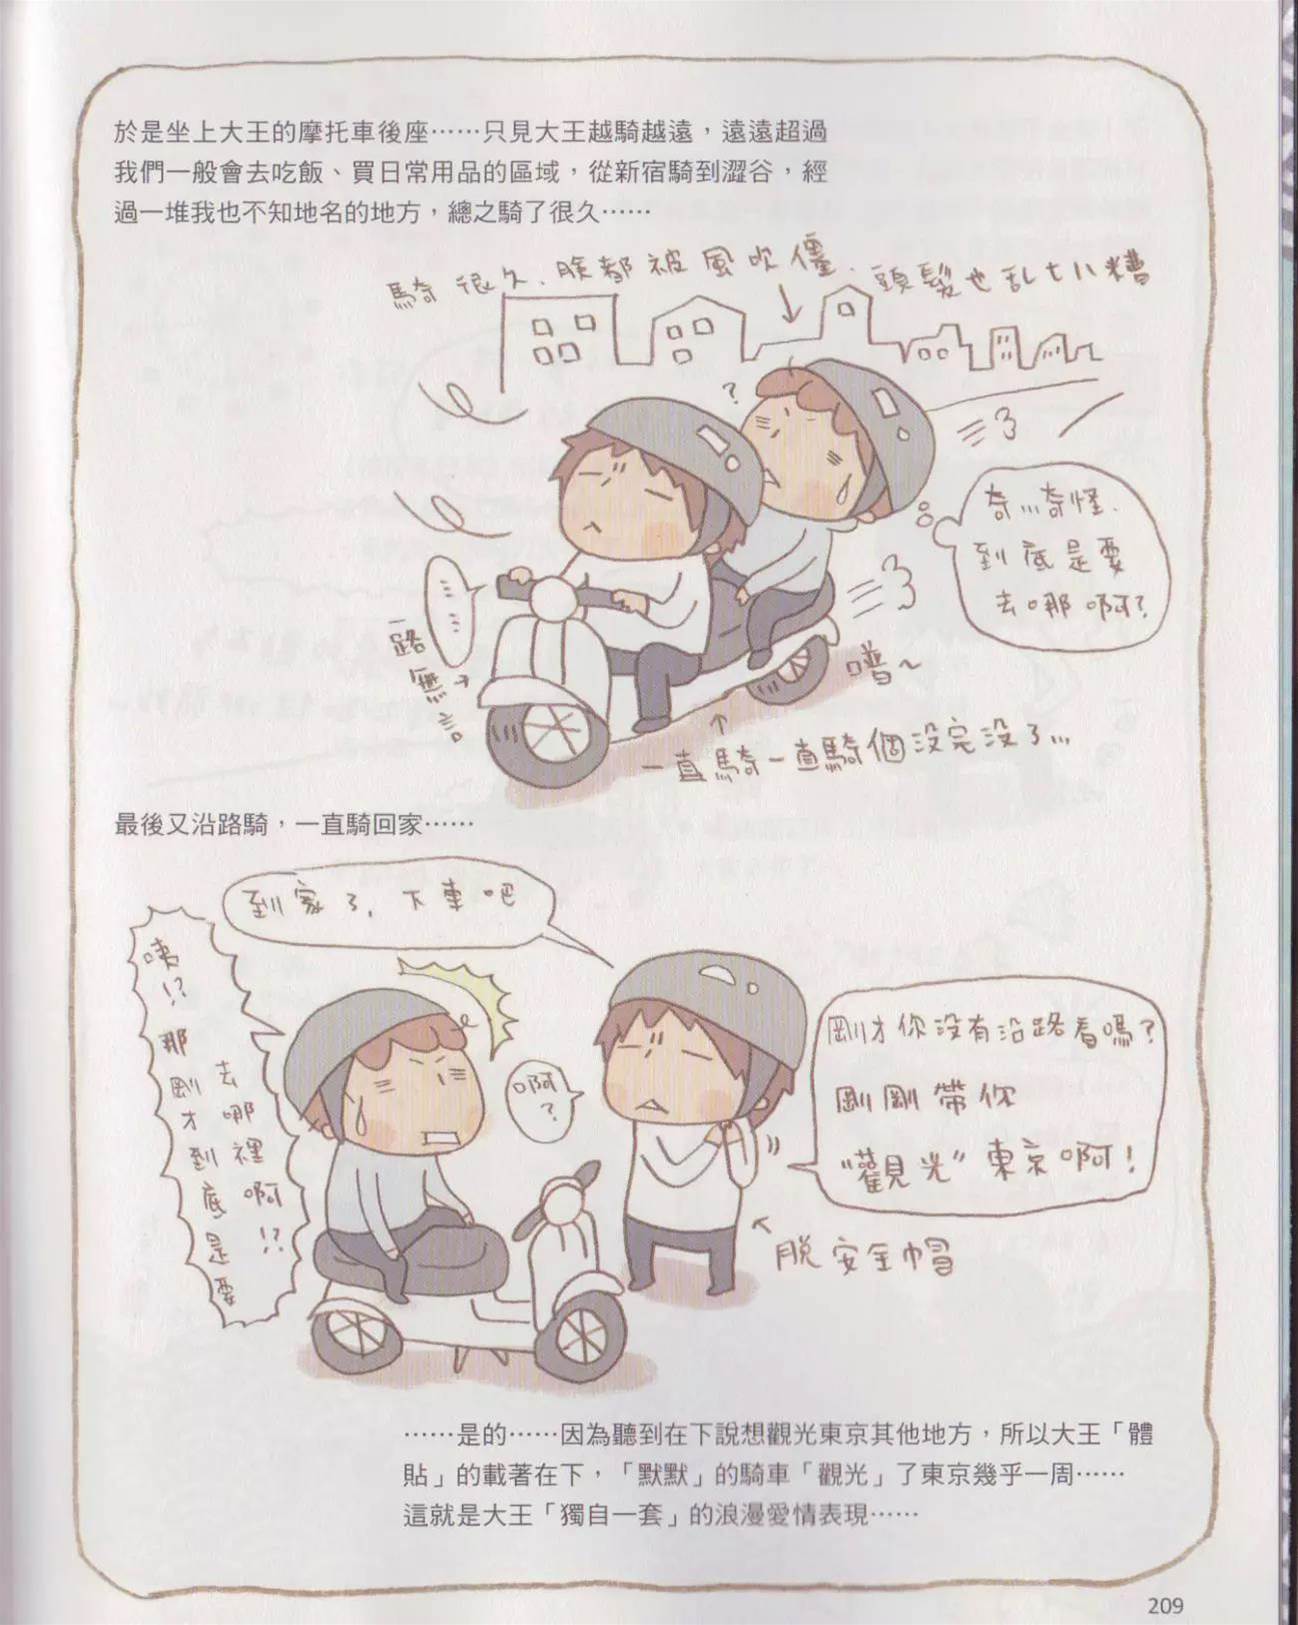 於是坐上大王的摩托車後座⋯⋯只見大王越騎越遠，遠遠超過
我們一般會去吃飯、買日常用品的區域，從新宿騎到澀谷，經
過一堆我也不知地名的地方，總之騎了很久⋯⋯
騎很久、臉都被風吹僵、頭髮也乱七八糟
?
奇...奇怪、
到底是要
去哪啊?
一路無言
噜~
一直騎一直騎個没完没了...
最後又沿路騎，一直騎回家⋯⋯
到家了, 下車吧
咦!?
那剛才到底是要
去哪裡啊!?
啊?
剛才你没有沿路看嗎?
剛剛帶你
"觀光"東京啊!
脫安全帽
⋯⋯是的⋯⋯因為聽到在下說想觀光東京其他地方，所以大王「體
貼」的載著在下，「默默」的騎車「觀光」了東京幾乎一周⋯⋯
這就是大王「獨自一套」的浪漫愛情表現⋯⋯
209